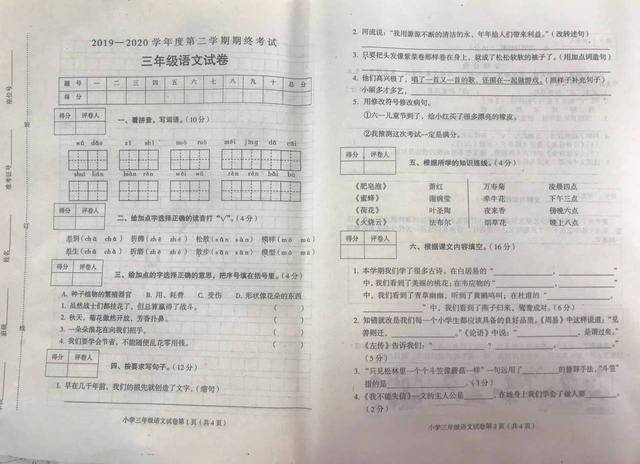 2019—2020学年度第二学期期终考试
三年级语文试卷
题号 一 二 三 四 五 六 七 八 九 十 总分
得分
得分 评卷人
一、看拼音,写词语。(10分)
得分 评卷人
二、给加点字选择正确的读音打“√”。(4分)
得分 评卷人
三、给加点的字选择正确的意思,把序号填在括号里。(4分)
A. 种子植物的繁殖器官 B. 用、耗费 C. 受伤 D. 形状像花朵的东西
1. 虽然战士们都挂花了,但总算赢得了战斗。 ( )
2. 秋天,菊花傲然开放,芳香扑鼻。 ( )
3. 一朵朵浪花在向我们招手。 ( )
4. 我们要学会节省,不能随便乱花零用钱。 ( )
得分 评卷人
四、按要求写句子。(12分)
1. 早在几千年前,我们的祖先就创造了文字。(缩句)
小学三年级语文试卷第1页(共4页)
2. 河流说:“我用源源不断的清洁的水,年年给人们带来利益。”(改转述句)
3. 只要把头发像紫菜卷那样卷在身上,就成了松松软软的被子了。(用加点词造句)
4. 他们高兴极了,唱了一支又一首的歌,还围在一起做游戏。(照样子补充句子)
小丽多才多艺,
5. 用修改符号修改病句。
①六一儿童节到了,给小红买了很多漂亮的橡皮。
②我推测这次考试一定是满分。
得分 评卷人
五、根据所学的知识连线。(4分)
《肥皂泡》 萧红 万寿菊 凌晨四点
《蜜蜂》 谢婉莹 牵牛花 下午三点
《荷花》 叶圣陶 夜来香 傍晚六点
《火烧云》 法布尔 烟草花 晚上八点
得分 评卷人
六、根据课文内容填空。(16分)
1. 本学期我们学了很多古诗。在白居易的“ , ”
中,我们看到了美丽的桃花;在韦应物的“ , ”
中,我们看到了青草幽幽,听到了黄鹂鸣叫;在杜甫的“ ,
”中,我们看到了燕子归来、鸳鸯成对。(6分)
2. 知错就改是我们每一个小学生都应该具备的良好品质。《周易》中这样说道:“见
善则迁, 。”《论语》中说:“ ,是谓过矣。”
《左传》告诉我们:“ ? , 。”
(5分)
3. “只见松林里一个个斗笠像蘑菇一样”一句运用了 的修辞手法,“斗笠”
指的是 。(3分)
4. 《我不能失信》一文的主人公是 ,在她身上我们学会了做人要 。
(2分)
小学三年级语文试卷第2页(共4页)